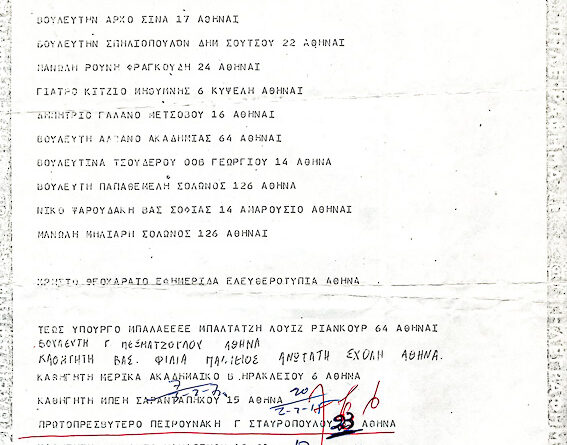 ΒΟΥΛΕΥΤΗΝ ΑΡΚΟ ΣΙΝΑ 17 ΑΘΗΝΑΙ
ΒΟΥΛΕΥΤΗΝ ΣΠΗΛΙΟΠΟΥΛΟΝ ΔΗΜ ΣΟΥΤΣΟΥ 22 ΑΘΗΝΑΙ
ΜΑΝΩΛΗ ΡΟΥΚΗ ΦΡΑΓΚΟΥΔΗ 24 ΑΘΗΝΑΙ
ΓΙΑΤΡΟ ΚΙΤΖΙΟ ΜΗΘΥΜΝΗΣ 6 ΚΥΨΕΛΗ ΑΘΗΝΑΙ
ΔΗΜΗΤΡΙΟ ΓΑΛΑΝΟ ΜΕΤΣΟΒΟΥ 16 ΑΘΗΝΑΙ
ΒΟΥΛΕΥΤΗ ΑΛΑΒΑΝΟ ΑΚΑΔΗΜΙΑΣ 64 ΑΘΗΝΑΙ
ΒΟΥΛΕΥΤΙΝΑ ΤΣΟΥΔΕΡΟΥ ΟΟΒ ΓΕΩΡΓΙΟΥ 14 ΑΘΗΝΑ
ΒΟΥΛΕΥΤΗ ΠΑΠΑΘΕΜΕΛΗ ΣΟΛΩΝΟΣ 126 ΑΘΗΝΑ
ΝΙΚΟ ΨΑΡΟΥΔΑΚΗ ΒΑΣ ΣΟΦΙΑΣ 14 ΑΜΑΡΟΥΣΙΟ ΑΘΗΝΑΙ
ΜΑΝΩΛΗ ΜΗΛΙΑΡΗ ΣΟΛΩΝΟΣ 126 ΑΘΗΝΑΙ
ΧΡΗΣΤΟ ΘΕΟΧΑΡΑΤΟ ΕΦΗΜΕΡΙΔΑ ΕΛΕΥΘΕΡΟΤΥΠΙΑ ΑΘΗΝΑ
ΤΕΩΣ ΥΠΟΥΡΓΟ ΜΠΑΛΑΕΕΕΕ ΜΠΑΛΤΑΤΖΗ ΛΟΥΙΖ ΡΙΑΝΚΟΥΡ 64 ΑΘΗΝΑΙ
ΒΟΥΛΕΥΤΗ Γ ΠΕΣΜΑΤΖΟΓΛΟΥ ΑΘΗΝΑ
ΚΑΘΗΓΗΤΗ ΒΑΣ. ΦΙΛΙΑ ΠΑΝΤΕΙΟΣ ΑΝΩΤΑΤΗ ΣΧΟΛΗ ΑΘΗΝΑ.
ΚΑΘΗΓΗΤΗ ΜΕΡΙΚΑ ΑΚΑΔΗΜΑΙΚΟ Β ΗΡΑΚΛΕΙΟΥ 6 ΑΘΗΝΑ
ΚΑΘΗΓΗΤΗ ΜΠΕΗ ΣΑΡΑΝΤΑΠΗΧΟΥ 15 ΑΘΗΝΑ
ΠΡΩΤΟΠΡΕΣΒΥΤΕΡΟ ΠΕΙΡΟΥΝΑΚΗ Γ ΣΤΑΥΡΟΠΟΥΛΟΥ 23 ΑΘΗΝΑ